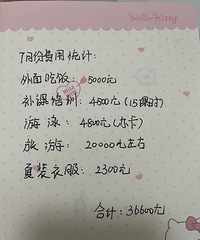 Hello Kitty
7月份费用统计:
外面吃饭: 5000元
补课培训: 4500元(15课时)
游泳: 4800元(办卡)
旅游: 20000元左右
夏装衣服: 2300元
合计: 36600元